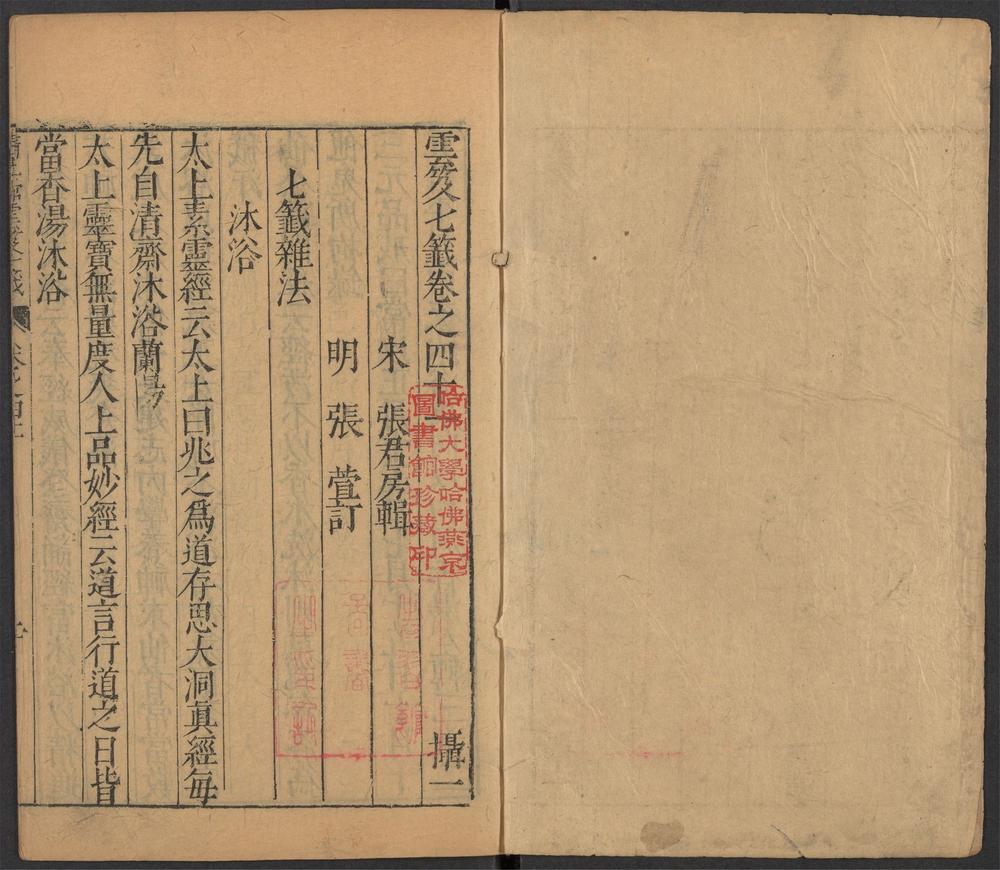 雲笈七籤卷之四十一
攝一
宋 張君房輯
明 張 萱訂
七籤雜法
沐浴
太上素靈經云太上曰兆之爲道存思大洞真經每
先自清齋沐浴蘭湯
太上靈寶無量度人上品妙經云道言行道之日皆
當香湯沐浴
哈佛大學哈佛燕京
圖書館珍藏印